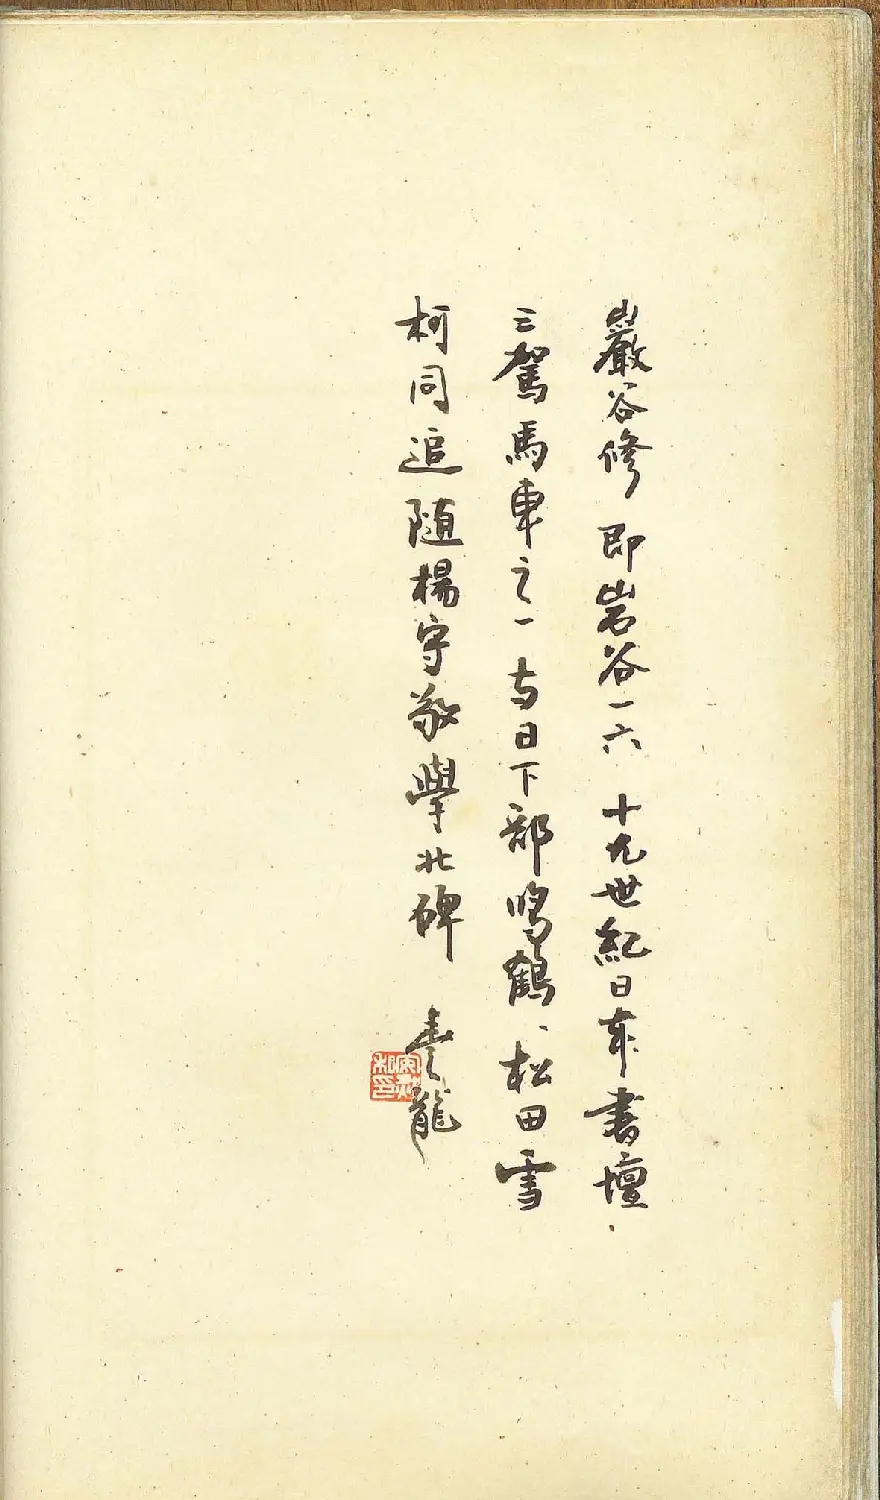 巖谷修 即岩谷一六 十九世紀日本書壇
三駕馬車之一 与日下部鳴鶴、松田雪
柯同追随楊守敬學北碑 龍